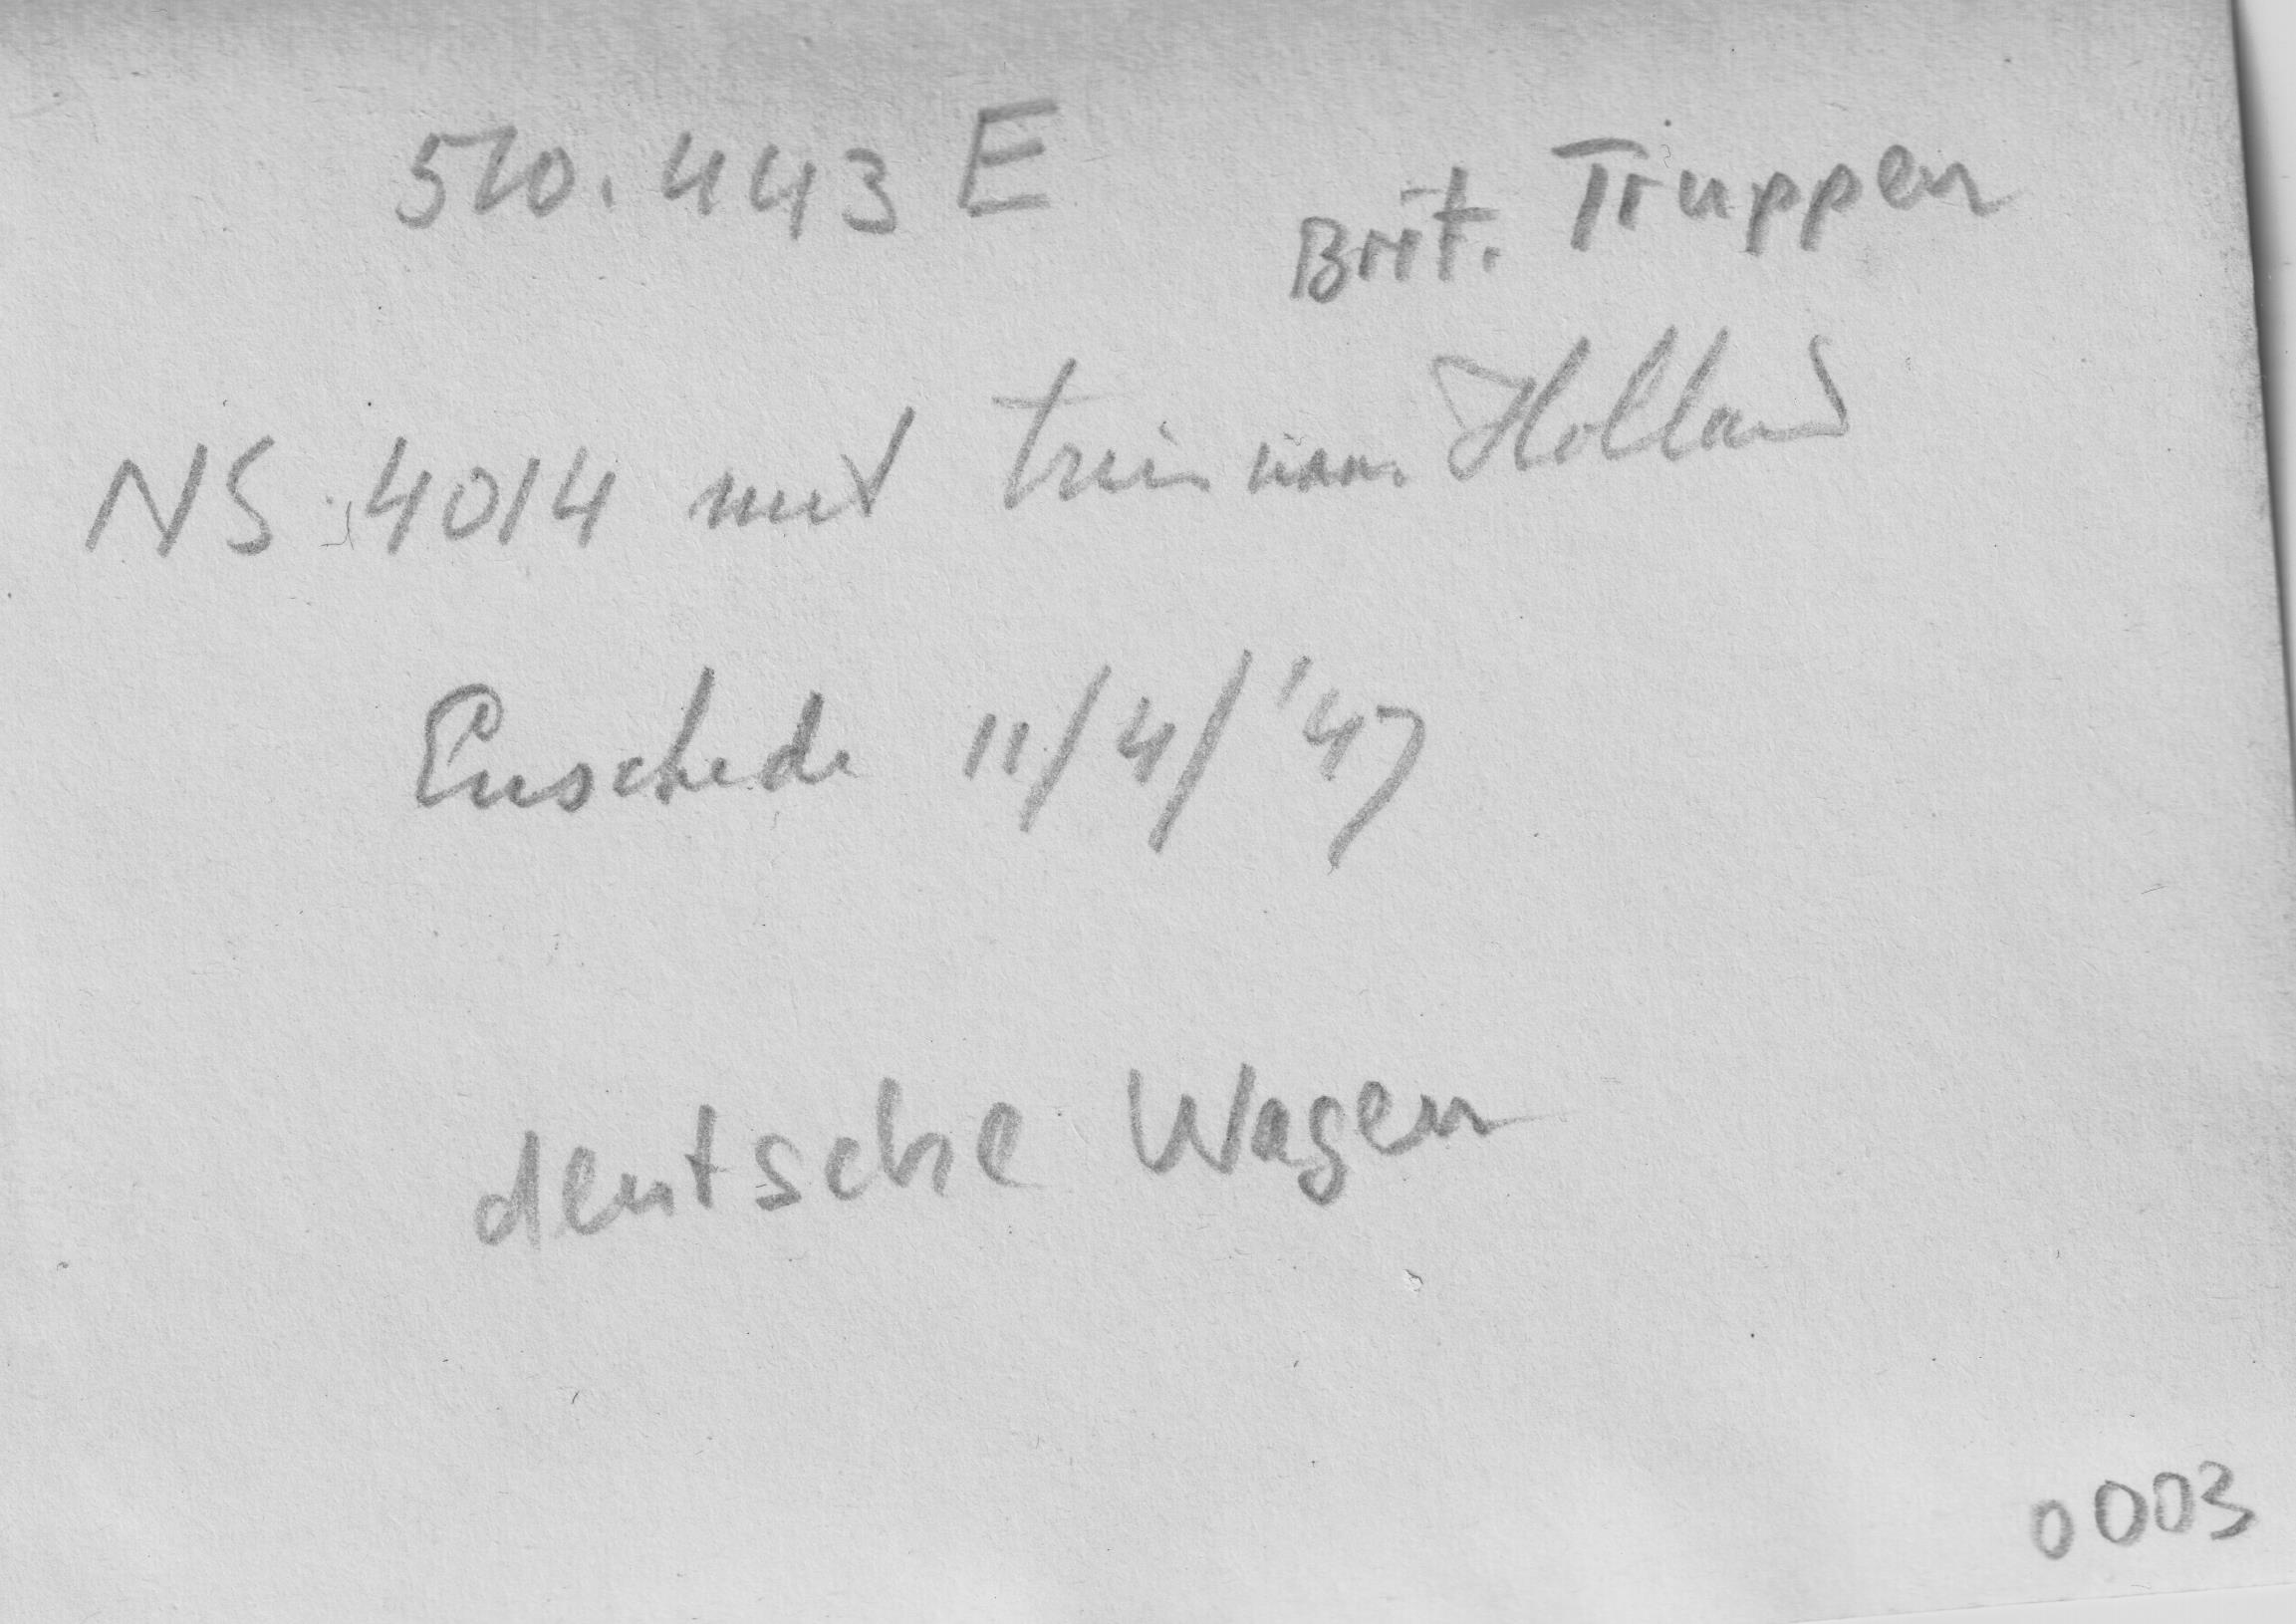 510.443 E
Brit. Truppen
NS 4014 met trein naar Holland
Enschede 11/4/'47
deutsche Wagen
0003